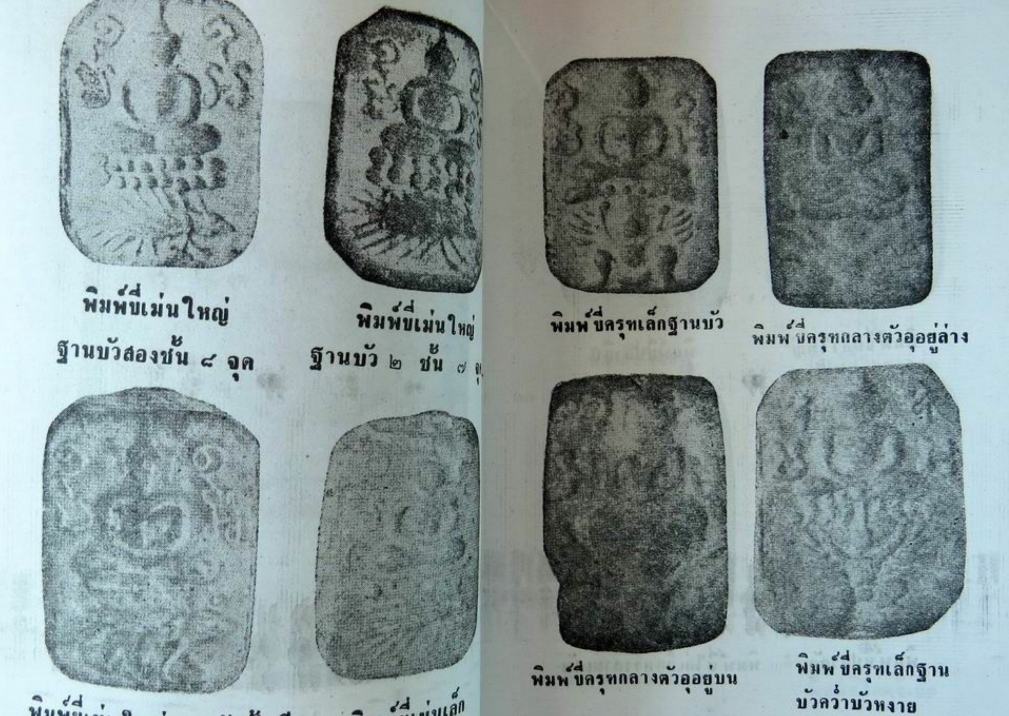 พิมพ์ขี่เม่นใหญ่
ฐานบัวสองชั้น ๘ จุด
พิมพ์ขี่เม่นใหญ่
ฐานบัว ๒ ชั้น ๗
พิมพ์ขี่เม่นเล็ก
พิมพ์ขี่ครุฑเล็กฐานบัว
พิมพ์ขี่ครุฑกลางตัวอุอยู่ล่าง
พิมพ์ขี่ครุฑกลางตัวอุอยู่บน
พิมพ์ขี่ครุฑเล็กฐาน
บัวคว่ำบัวหงาย